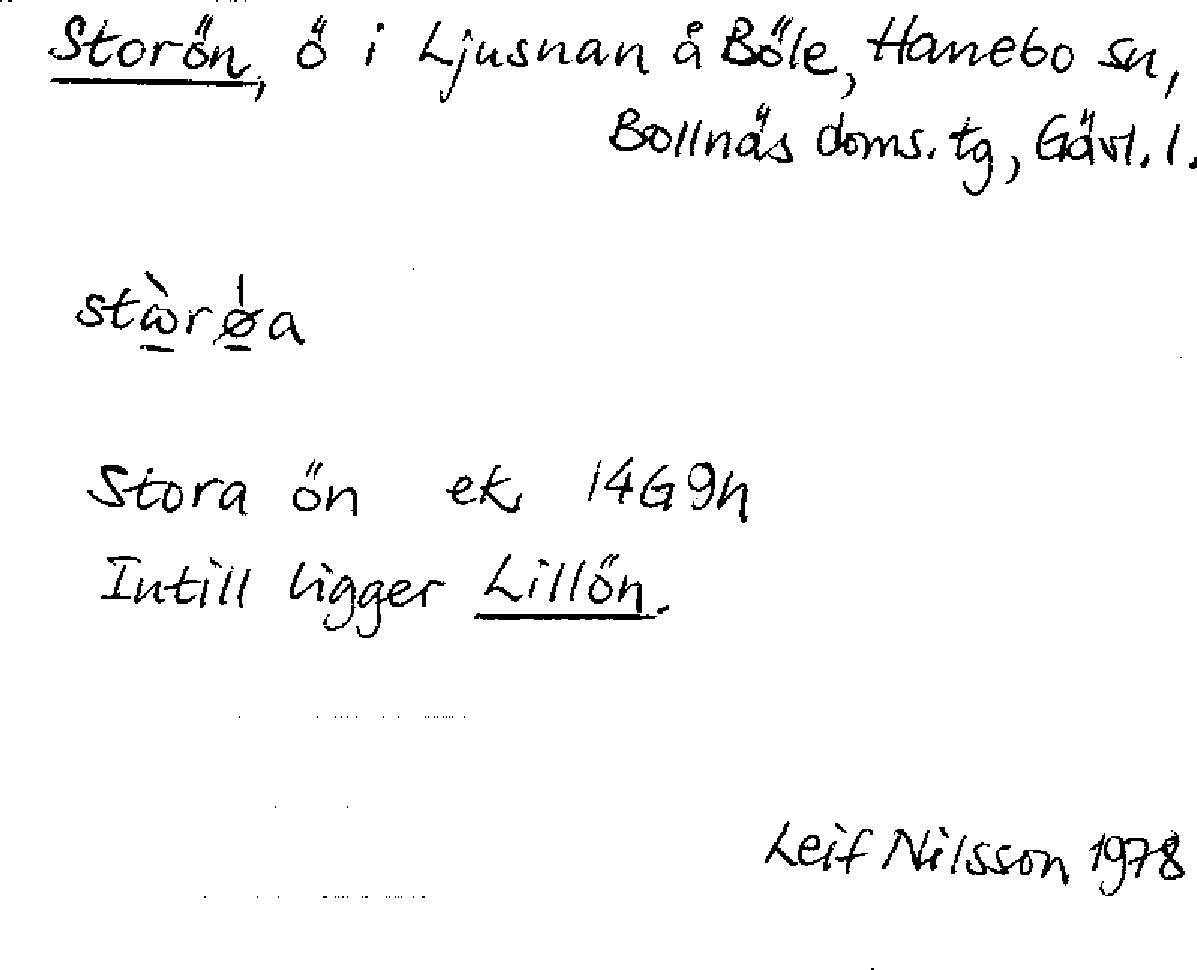 Storön, ö i Ljusnan å Böle, Hanebo sn,
Bollnäs doms. tg, Gävl. l.
stὼ̲rø̲̍a
Stora ön ek. 14G9h
Intill ligger Lillön.
Leif Nilsson 1978